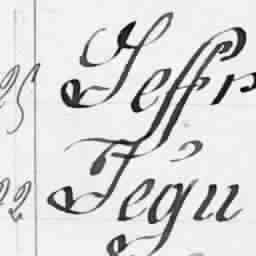 25 Jeffr
22. Tégu